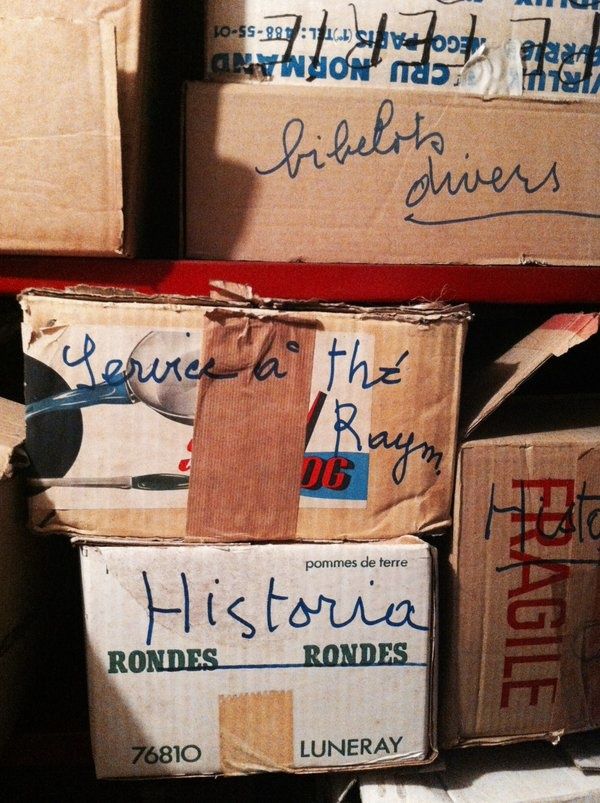 488-55-01
CRU NORMAND
bibelots
divers
Service à thé
Raym.
OG
pommes de terre
Historia
RONDES RONDES
76810 LUNERAY
Histo
FRAGILE